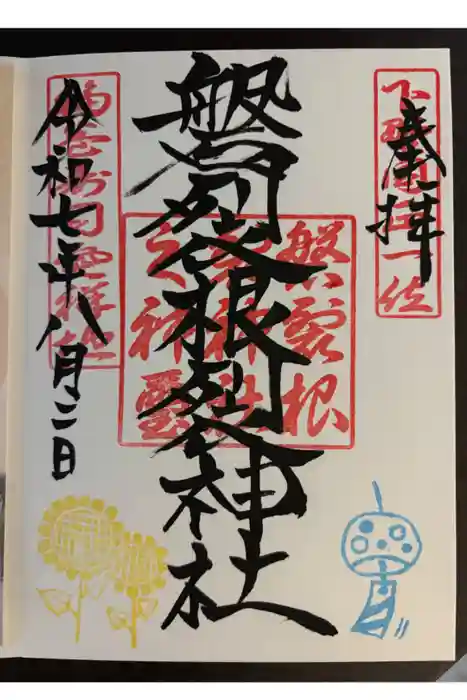 奉拝
下野国正一位
磐裂根裂神社
磐裂根
裂神社
令和七年八月二日